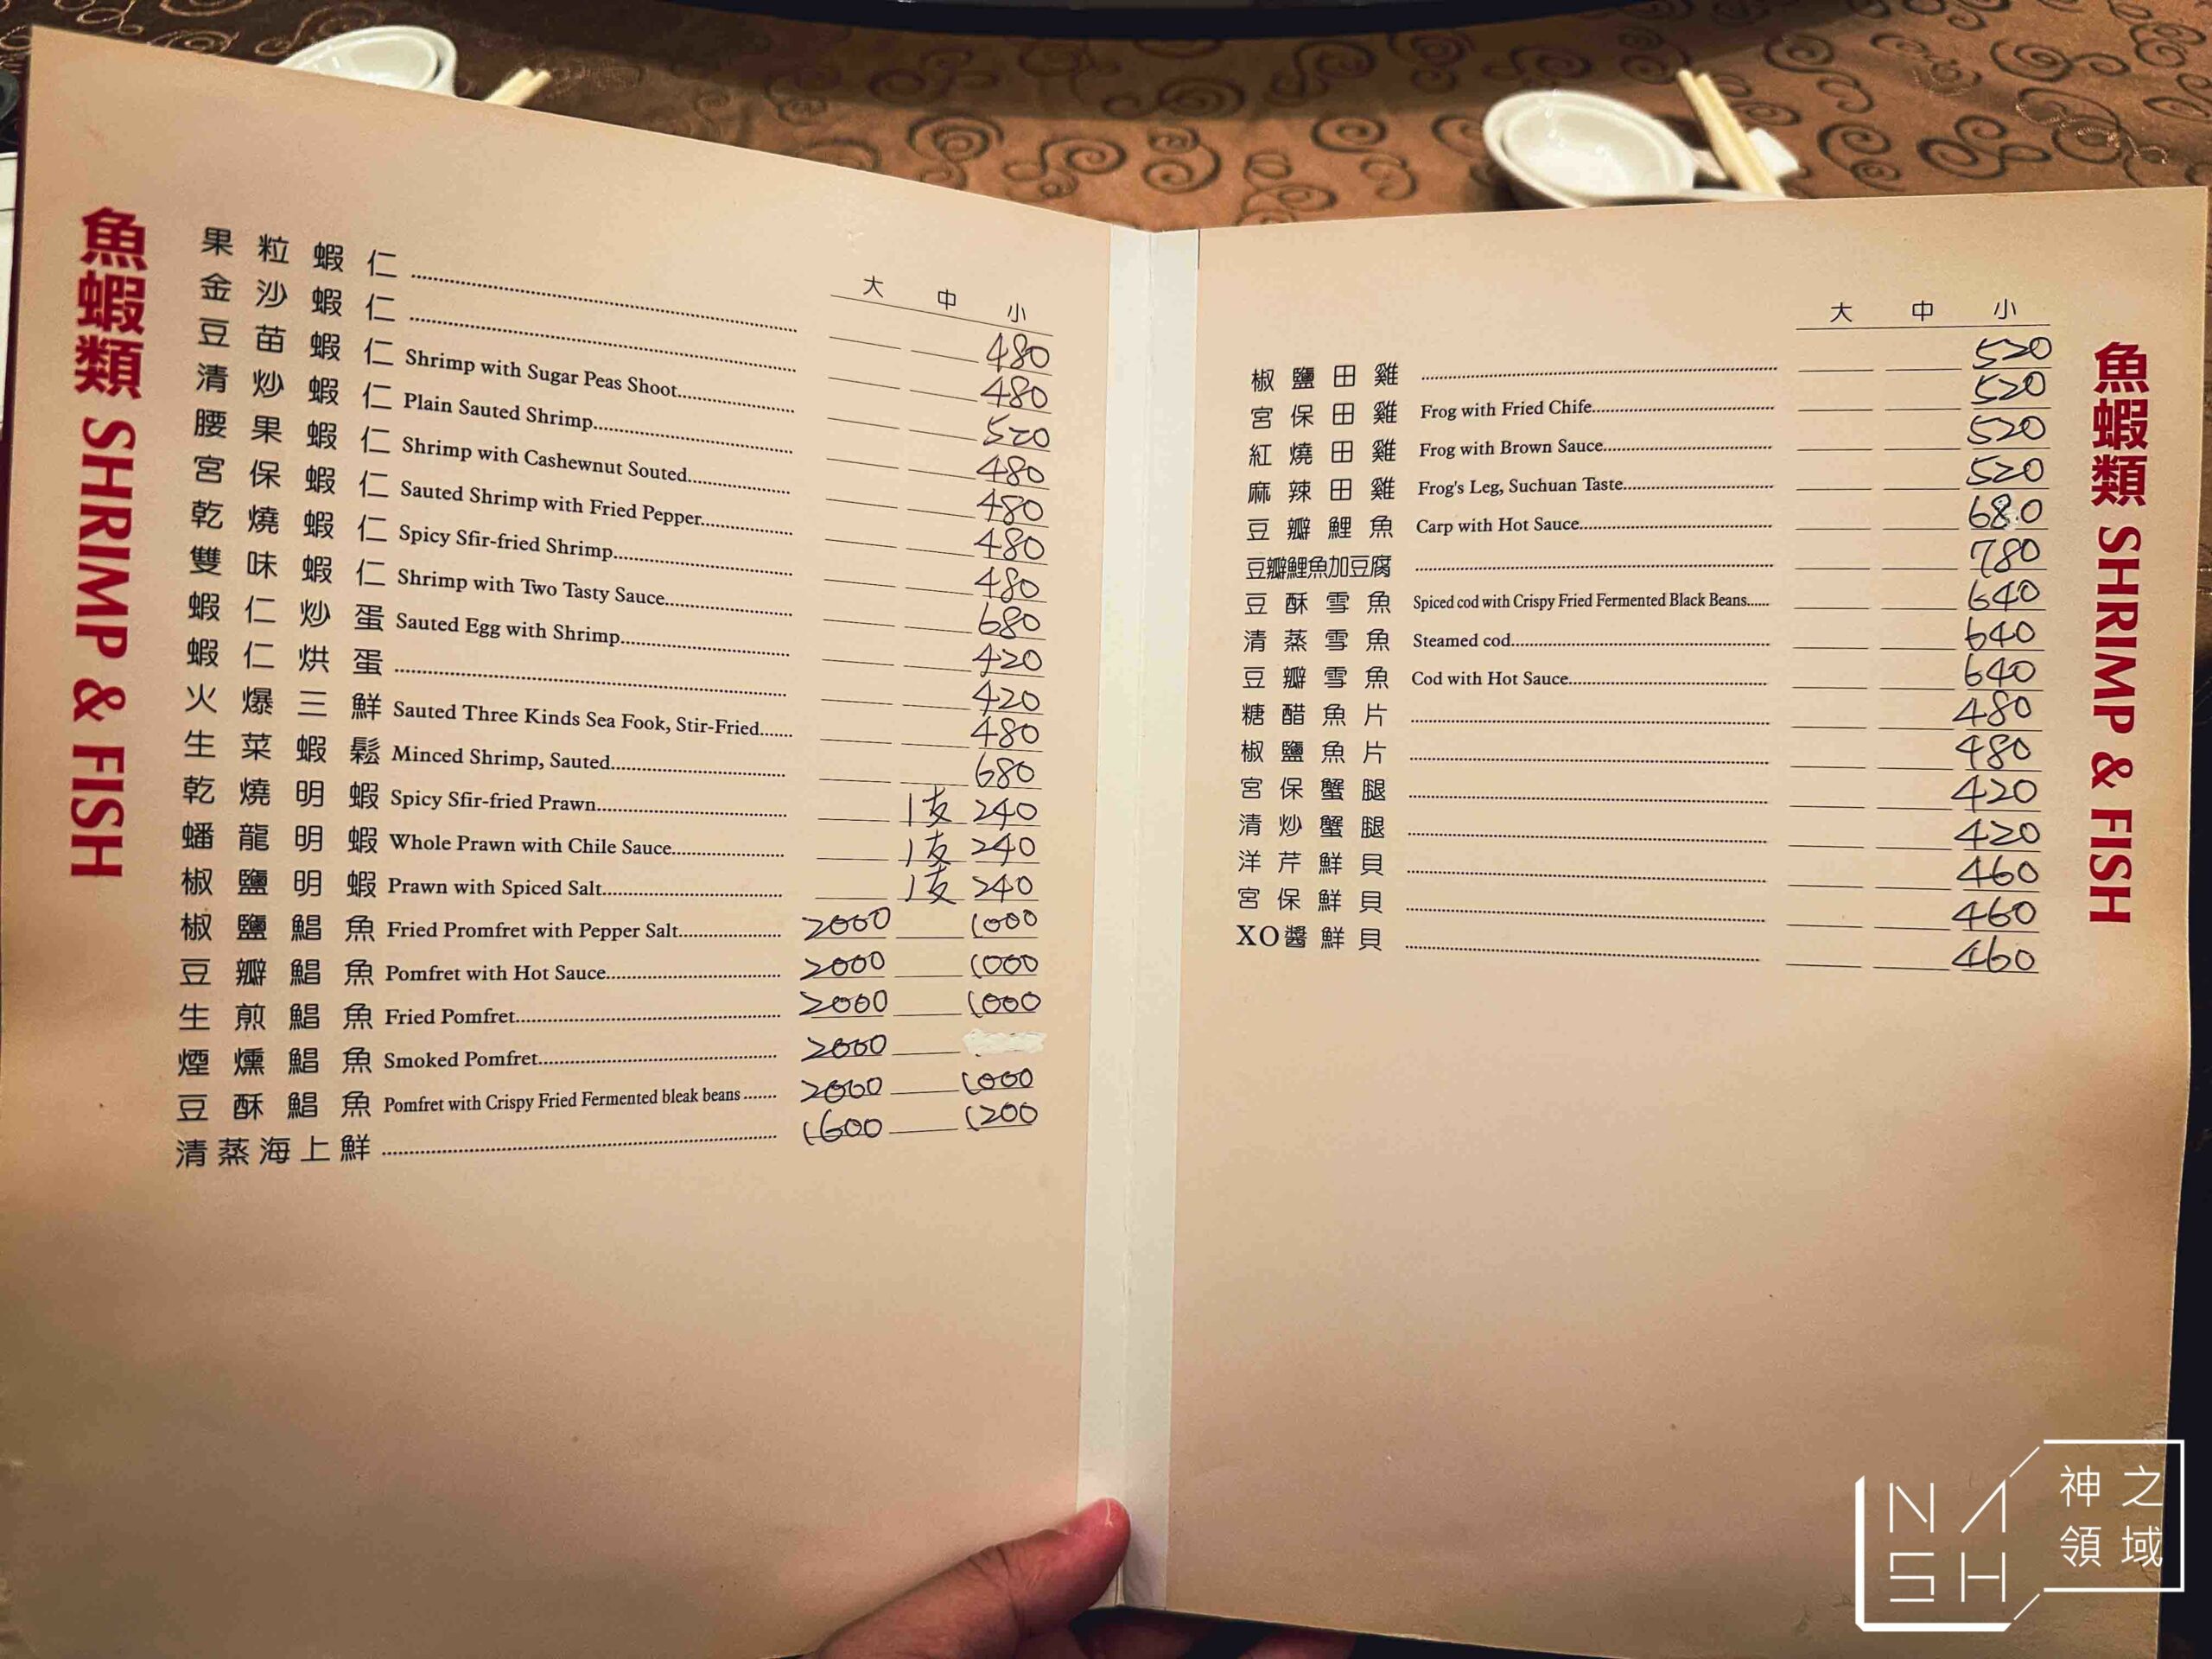 魚蝦類 SHRIMP & FISH
大 中 小
果粒蝦仁 480
金沙蝦仁 480
豆苗蝦仁 Shrimp with Sugar Peas Shoot 520
清炒蝦仁 Plain Sauted Shrimp 480
腰果蝦仁 Shrimp with Cashewnut Souted 480
宮保蝦仁 Sauted Shrimp with Fried Pepper 480
乾燒蝦仁 Spicy Sfir-fried Shrimp 480
雙味蝦仁 Shrimp with Two Tasty Sauce 680
蝦仁炒蛋 Sauted Egg with Shrimp 420
蝦仁烘蛋 420
火爆三鮮 Sauted Three Kinds Sea Fook, Stir-Fried 480
生菜蝦鬆 Minced Shrimp, Sauted 680
乾燒明蝦 Spicy Sfir-fried Prawn 1支 240
蟠龍明蝦 Whole Prawn with Chile Sauce 1支 240
椒鹽明蝦 Prawn with Spiced Salt 1支 240
椒鹽鯧魚 Fried Promfret with Pepper Salt 2000 1000
豆瓣鯧魚 Pomfret with Hot Sauce 2000 1000
生煎鯧魚 Fried Pomfret 2000 1000
煙燻鯧魚 Smoked Pomfret 2000
豆酥鯧魚 Pomfret with Crispy Fried Fermented bleak beans 2000 1000
清蒸海上鮮 1600 1200
大 中 小
椒鹽田雞 520
宮保田雞 Frog with Fried Chife 520
紅燒田雞 Frog with Brown Sauce 520
麻辣田雞 Frog's Leg, Suchuan Taste 520
豆瓣鯉魚 Carp with Hot Sauce 680
豆瓣鯉魚加豆腐 780
豆酥雪魚 Spiced cod with Crispy Fried Fermented Black Beans 640
清蒸雪魚 Steamed cod 640
豆瓣雪魚 Cod with Hot Sauce 640
糖醋魚片 480
椒鹽魚片 480
宮保蟹腿 420
清炒蟹腿 420
洋芹鮮貝 460
宮保鮮貝 460
XO醬鮮貝 460
魚蝦類 SHRIMP & FISH
NASH
神之
領域